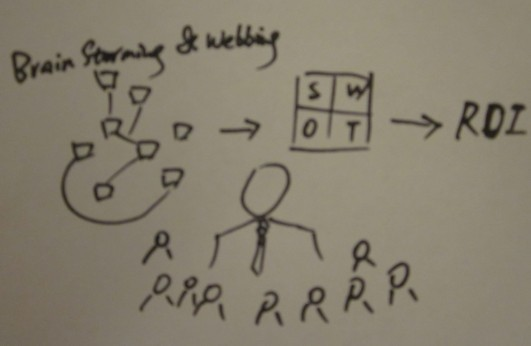 Brain Storming & Webbing
S W
O T
RDI